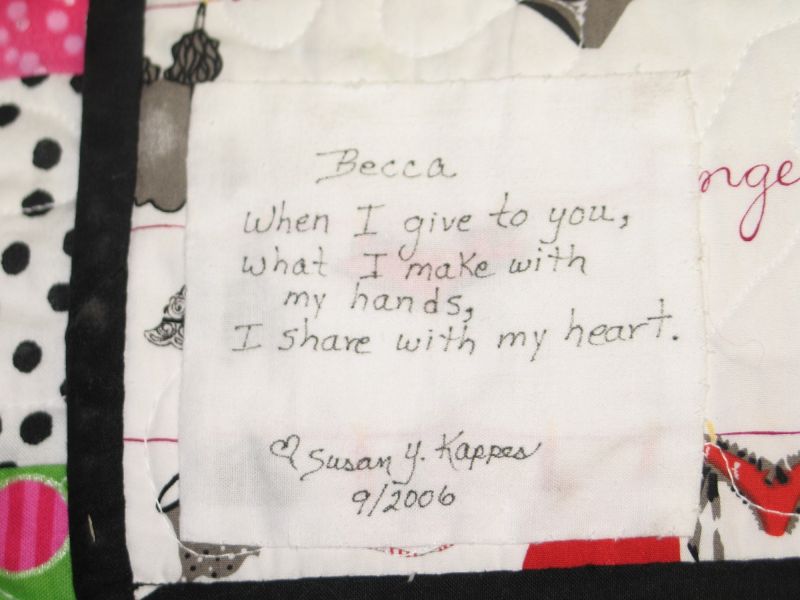 Becca
When I give to you,
what I make with
my hands,
I share with my heart.
♡ Susan Y. Kappes
9/2006
nge